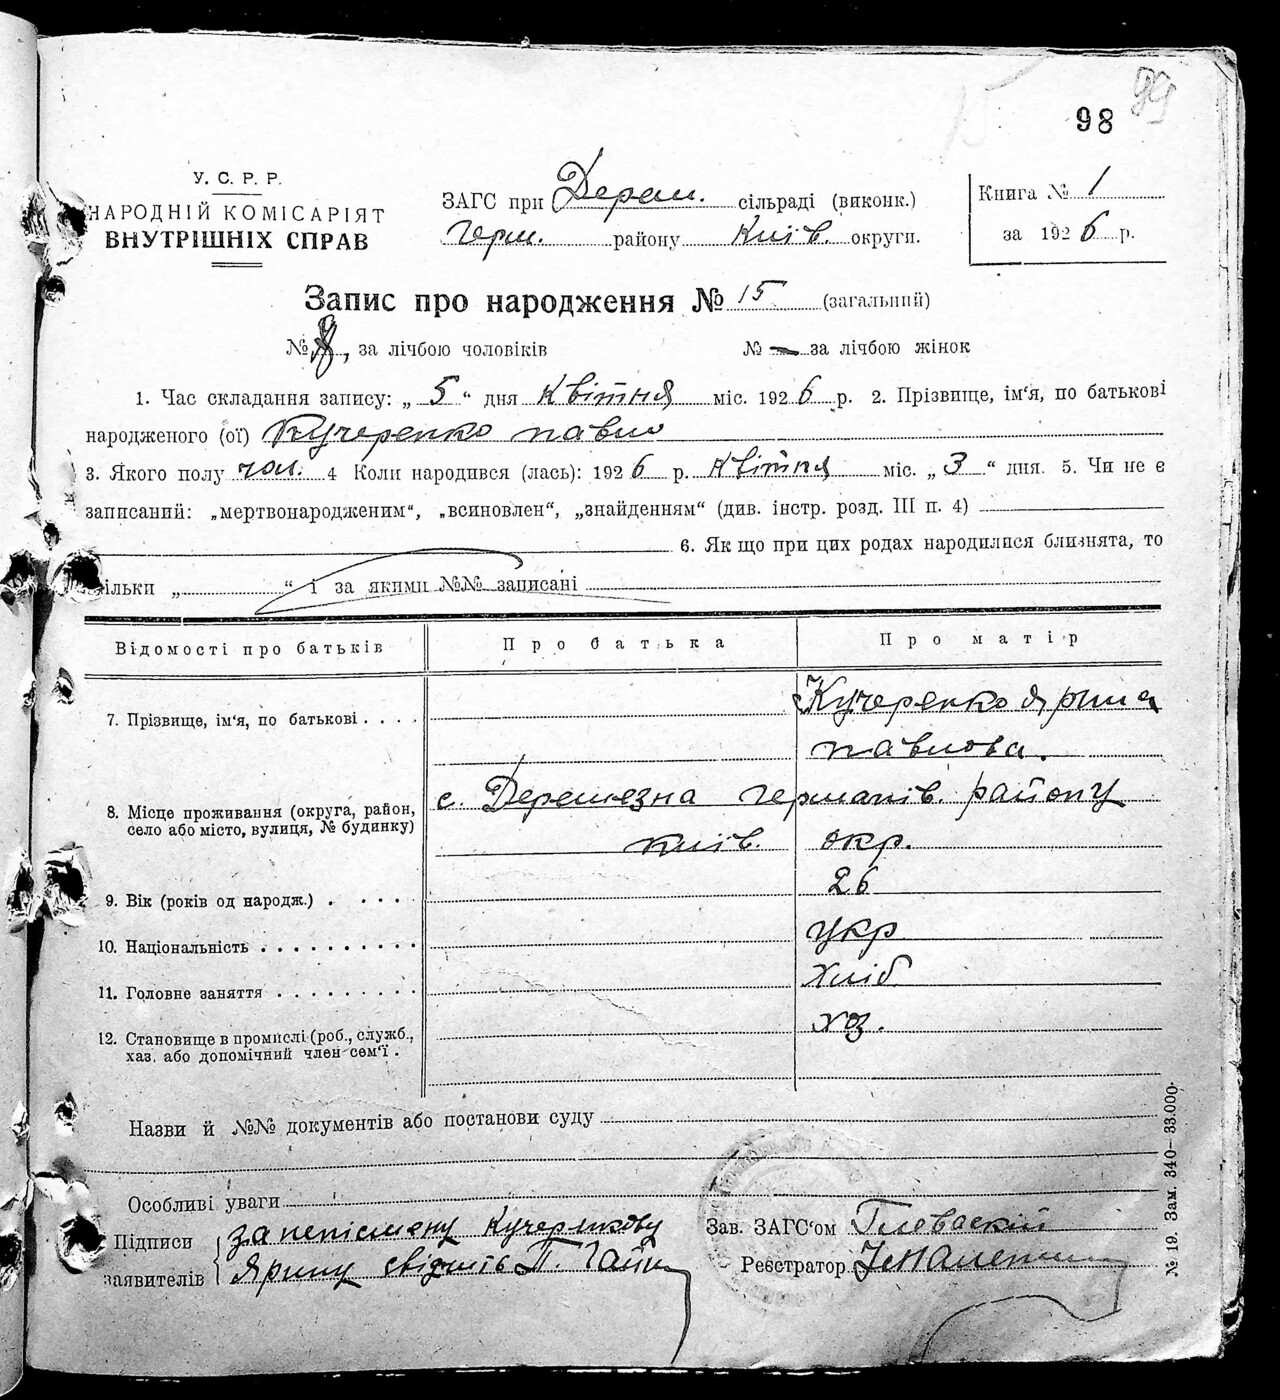 99
98
У. С. Р. Р.
НАРОДНІЙ КОМІСАРІЯТ
ВНУТРІШНІХ СПРАВ
ЗАГС при Дерем. сільраді (виконк.)
Герм. району Київ. округи.
Книга № 1
за 1926 р.
Запис про народження № 15 (загальний)
№ 8, за лічбою чоловіків № — за лічбою жінок
1. Час складання запису: „ 5 “ дня квітня міс. 1926 р. 2. Прізвище, ім‘я, по батькові
народженого (ої) Кучеренко павло
3. Якого полу чол. 4 Коли народився (лась): 1926 р. квітня міс. „ 3 “ дня. 5. Чи не є
записаний: „мертвонародженим“, „всиновлен“, „знайденням“ (див. інстр. розд. III п. 4)
6. Як що при цих родах народилися близнята, то
кільки „ “ і за якими №№ записані
Відомості про батьків Про батька Про матір
7. Прізвище, ім‘я, по батькові . . . . Кучеренко Ярина
павлова.
8. Місце проживання (округа, район, село або місто, вулиця, № будинку) с. Деремезна германів. району
київ. окр.
9. Вік (років од народж.) . . . . . 26
10. Національність . . . . . . . . . . укр
11. Головне заняття . . . . . . . . . хліб
12. Становище в промислі (роб., служб., хаз. або допомічний член сем‘ї . хоз.
Назви й №№ документів або постанови суду
Особливі уваги
Підписи
заявителів
за неписмену Кучеренкову
Ярину свідчить П. Гайн
Зав. ЗАГС‘ом
Реєстратор
№ 19. Зам. 340— 33.000.